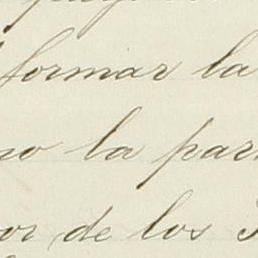 formar la
no la par
or de los